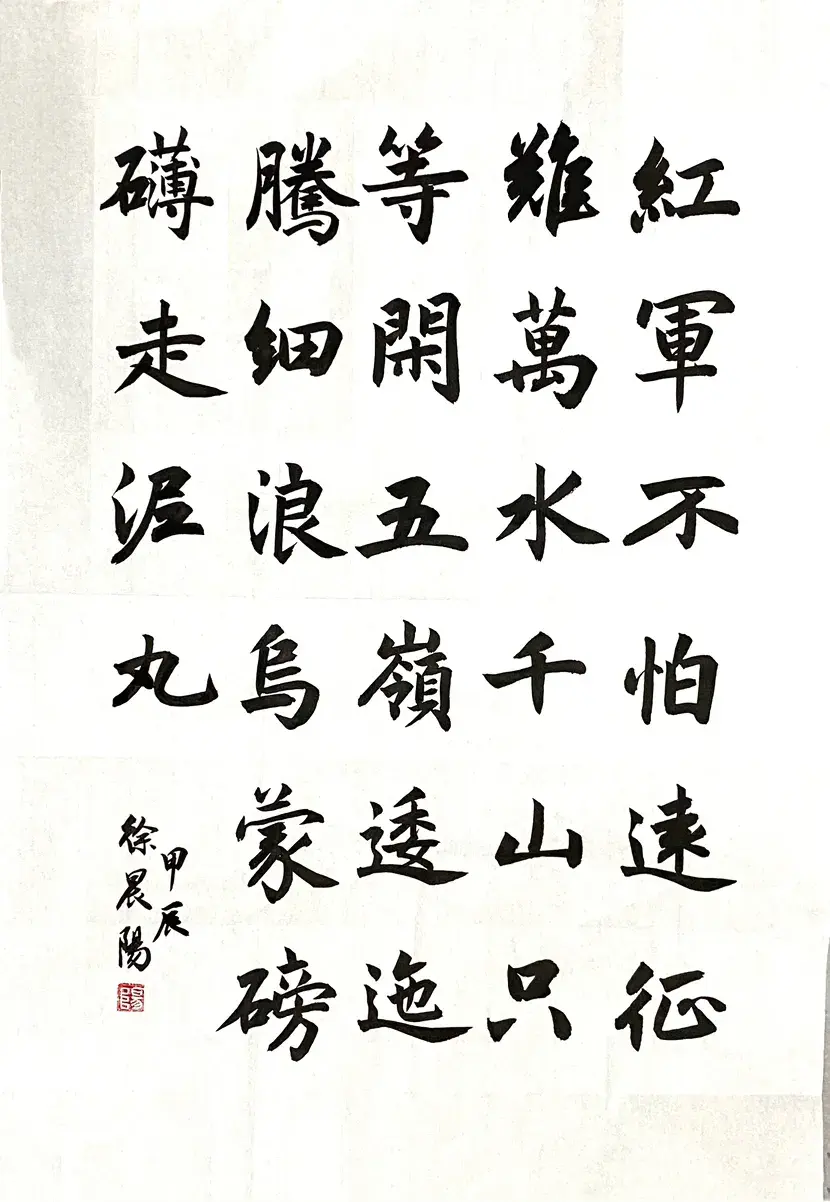 紅軍不怕遠征
難萬水千山只
等閑五嶺逶迤
騰細浪烏蒙磅
礴走泥丸
甲辰
徐晨陽